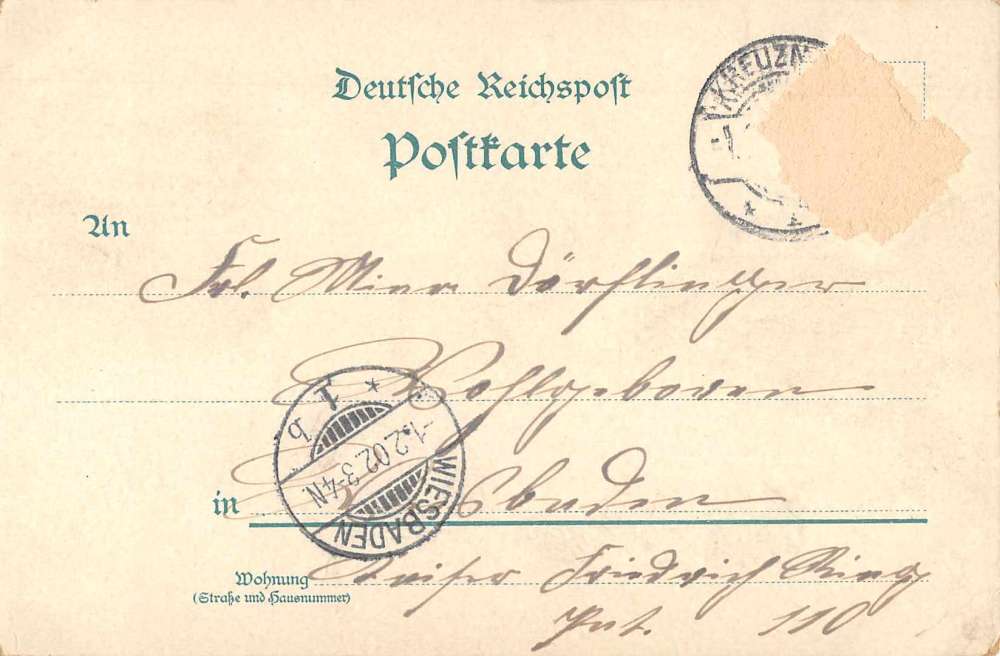 Deutsche Reichspost
Postkarte
KREUZN
An
Frl. Mina Dörflinger
Wohlgeboren
in Wiesbaden
Wohnung
(Straße und Hausnummer)
Kaiser Friedrich Ring
110
WIESBADEN
-1.2.02.3-4N.
* 1 b